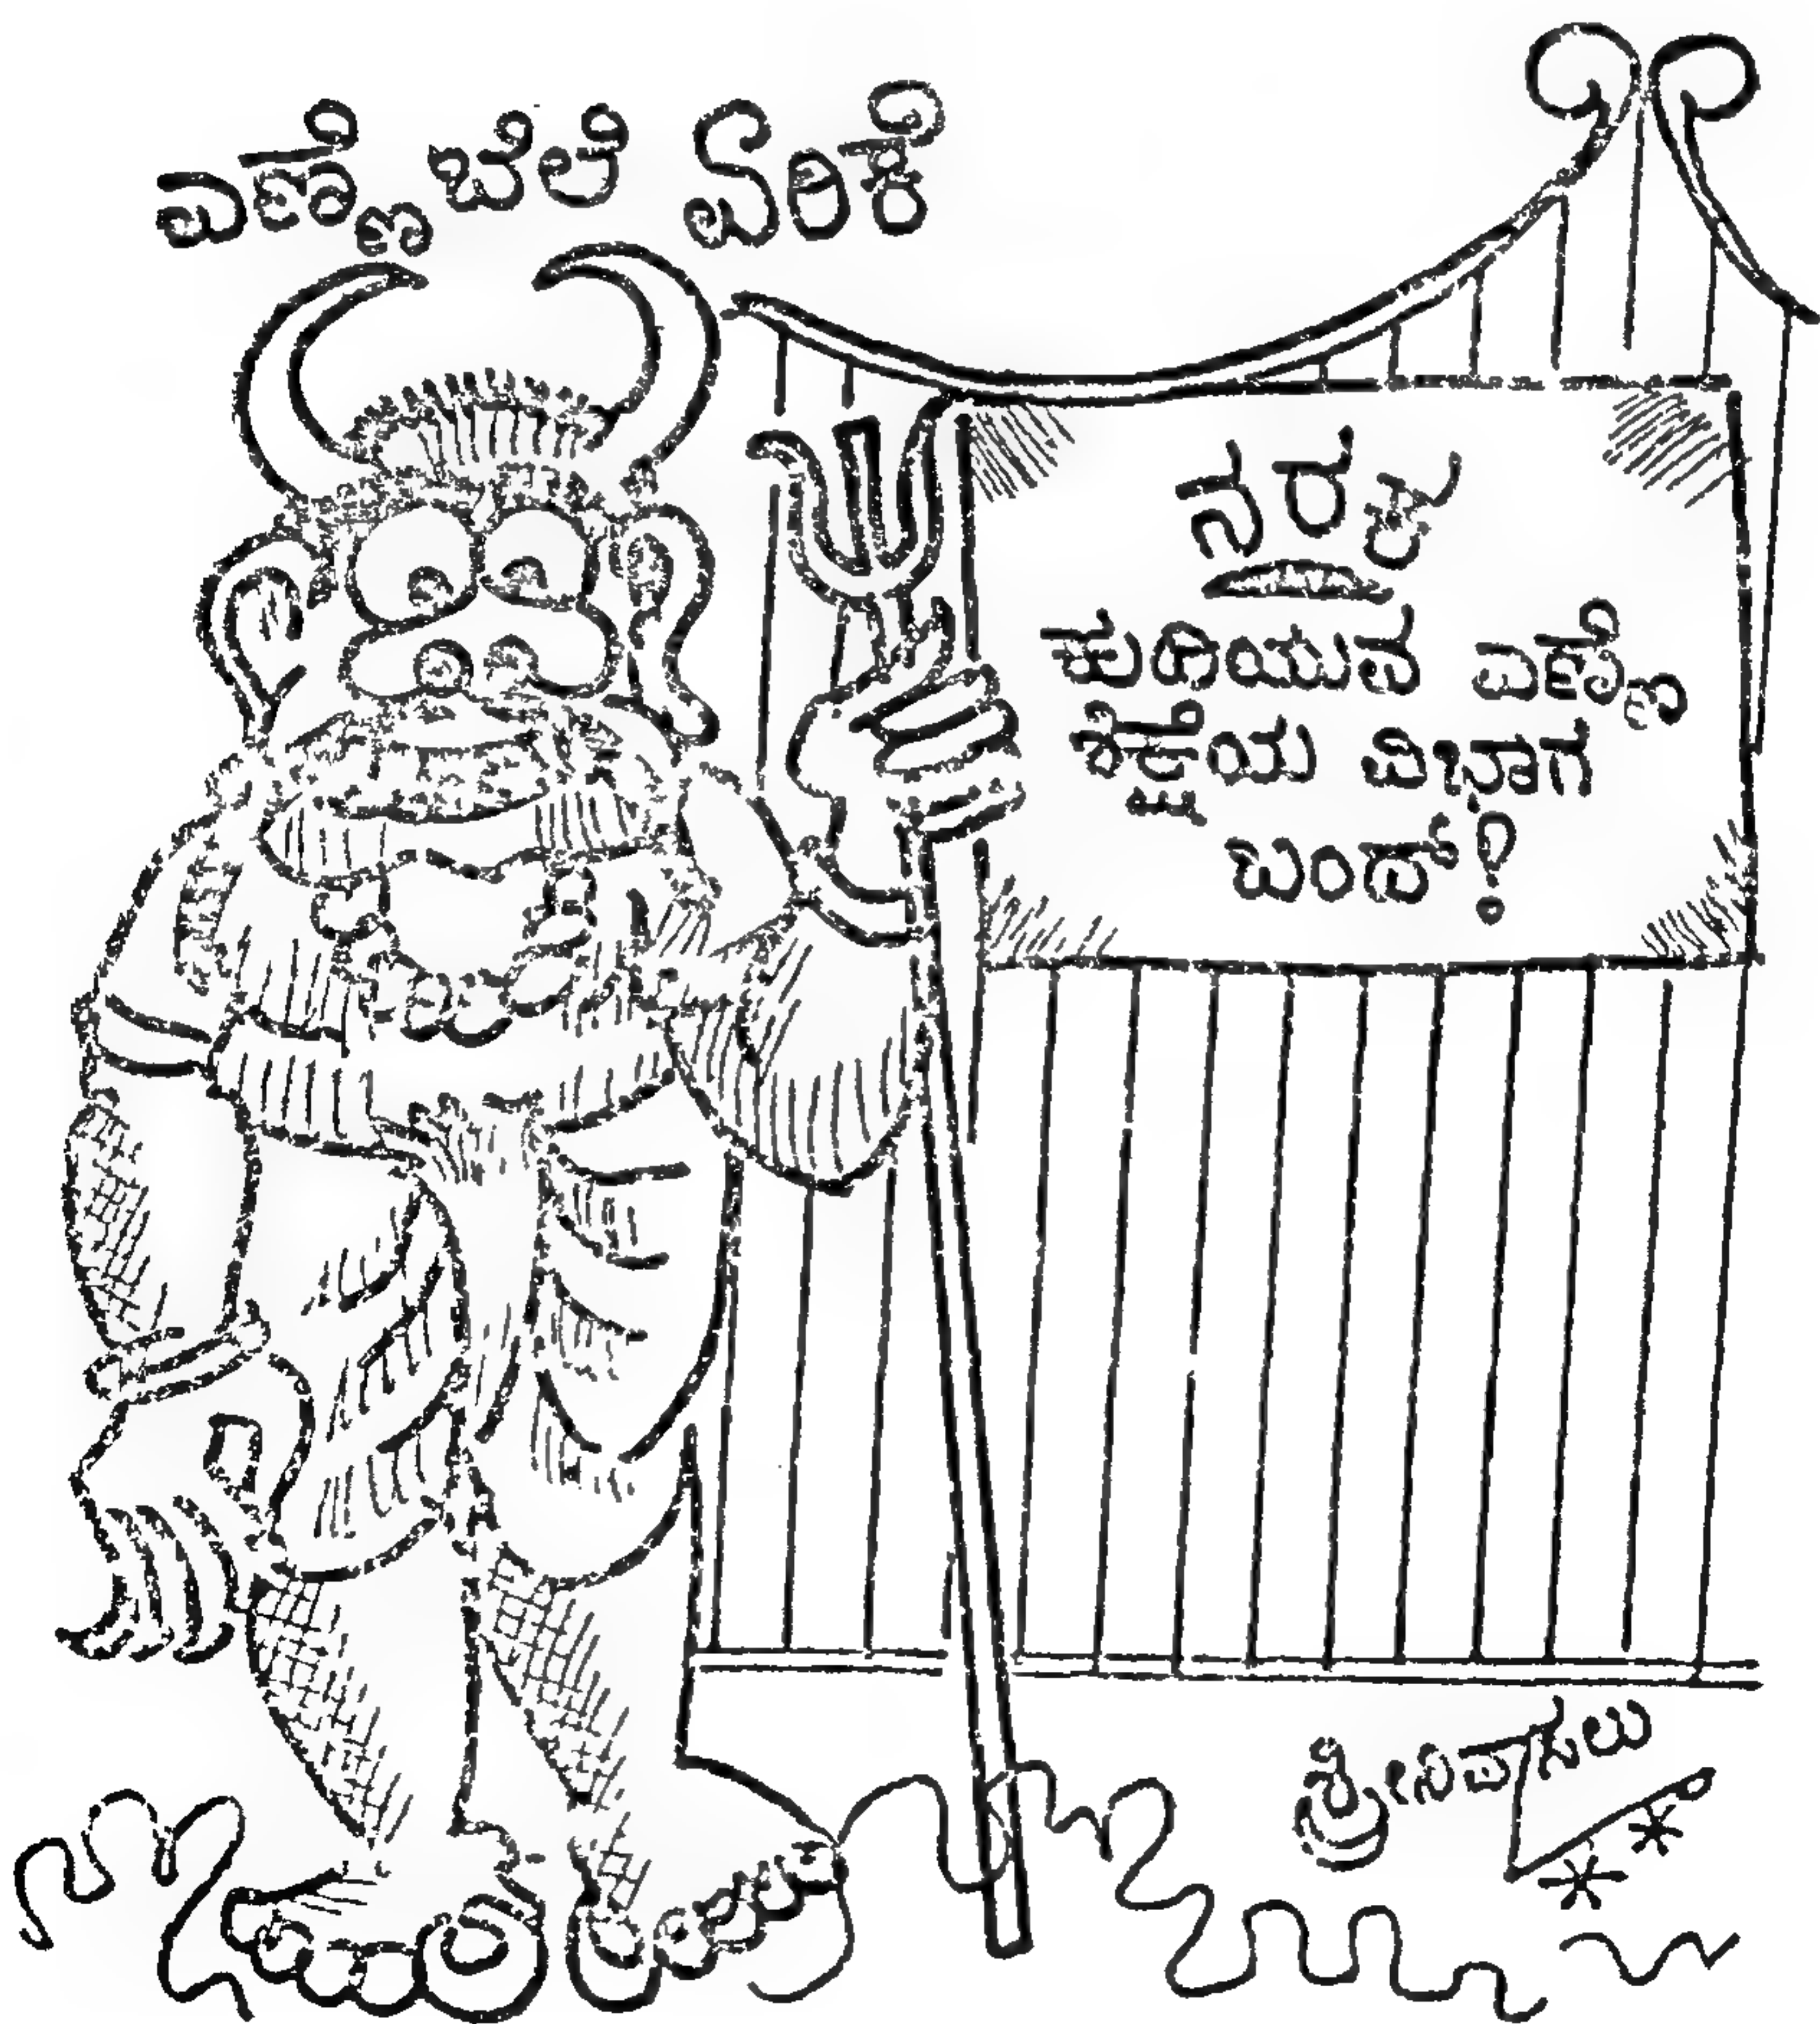 ಎಣ್ಣೆ ಬೆಲೆ ಏರಿಕೆ
ನರಕ
ಕುದಿಯುವ ಎಣ್ಣೆ
ಶಿಕ್ಷೆಯ ವಿಭಾಗ
ಬಂದ್?
ಶ್ರೀನಿವಾಸಲು